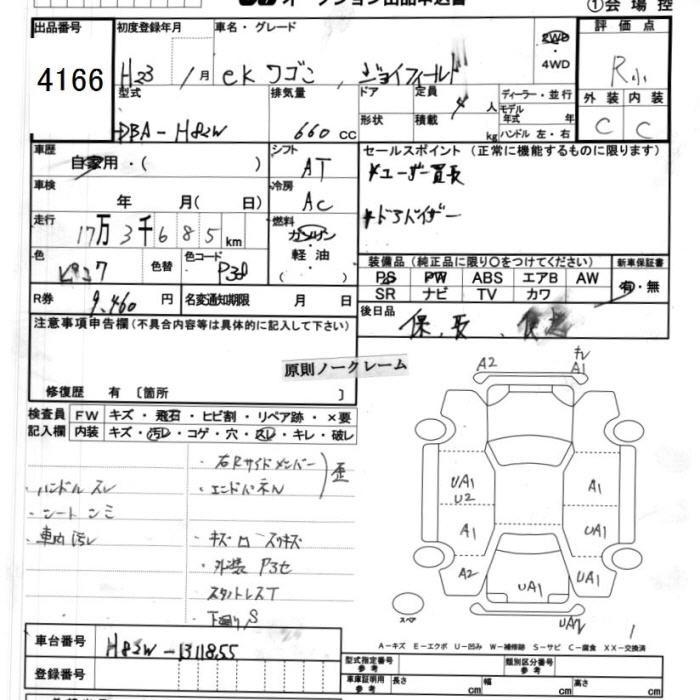 オークション出品申込書
①会場控
出品番号
4166
初度登録年月
H23 / 月
車名・グレード
ek ワゴン ジョイフィールド
2WD
4WD
評価点
R小
外装 内装
C C
型式
DBA-H82W
排気量
660 cc
ドア
形状
定員
4 人
積載
kg
ディーラー・並行
モデル
年式 年
ハンドル 左・右
車歴
自家用・( )
シフト
AT
セールスポイント (正常に機能するものに限ります)
*ユーザー買長
*ドアバイザー
車検
年 月( 日)
冷房
AC
走行
17万3千685km
燃料
ガソリン
軽油
( )
色
色替
色コード
P38
装備品 (純正品に限り○をつけてください)
PS PW ABS エアB AW
SR ナビ TV カワ
新車保証書
有・無
R券
9,460 円
名変通知期限 月 日
後日品
保、長、
注意事項申告欄(不具合内容等は具体的に記入して下さい)
原則ノークレーム
修復歴 有 〔箇所 〕
検査員
記入欄
FW キズ・飛石・ヒビ割・リペア跡・×要
内装 キズ・汚レ・コゲ・穴・スレ・キレ・破レ
・右Rサイドメンバー
・エンドパネル
歪
・ハンドルスレ
・シートシミ
・車内汚レ
・外装
・下廻りS
A2
A1
UA1
U2
A1
A1
UA1
A2
UA1
UA1
スペア
A-キズ E-エクボ U-凹み W-補修跡 S-サビ C-腐食 XX-交換済
車台番号
H82W-1311855
登録番号
型式指定番号
参考
類別区分番号
参考
車庫証明用
参考
長さ cm
幅 cm
高さ cm